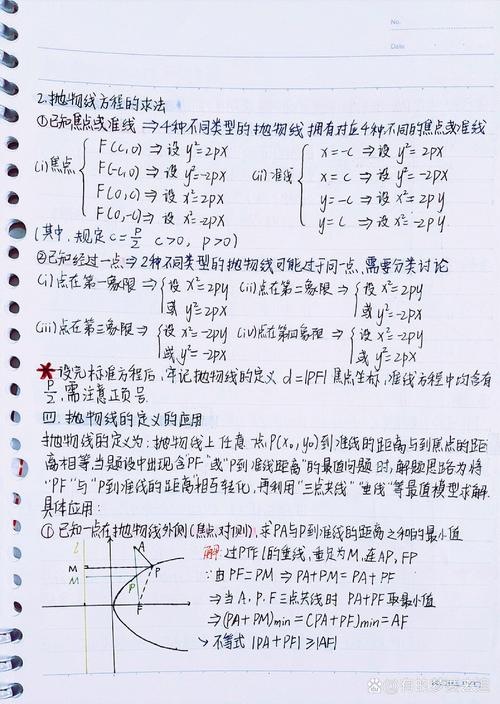 No.
Date
2.抛物线方程的求法
①已知焦点或准线⇒4种不同类型的抛物线拥有对应4种不同的焦点或准线
(i)焦点 F(c,0)⇒设 y²=2px (ii)准线 x=-c⇒设 y²=2px
F(-c,0)⇒设 y²=-2px x=c⇒设 y²=-2px
F(0,c)⇒设 x²=2px y=-c⇒设 x²=2py
F(0,-c)⇒设 x²=-2px y=c⇒设 x²=-2py
(其中,规定c=p/2 c>0, p>0)
②已知经过一点⇒2种不同类型的抛物线可能过于同一点,需要分类讨论
(i)点在第一象限⇒ 设 x²=2py (ii)点在第二象限⇒ 设 x²=2py
或 y²=2px 或 y²=-2px
(iii)点在第三象限⇒ 设 x²=-2py (iv)点在第四象限⇒ 设 x²=-2py
或 y²=-2px 或 y²=2px
*设完标准方程后,牢记抛物线的定义 d=|PF| 焦点坐标,准线方程中均含有
p/2,需注意正负号.
四.抛物线的定义的应用
抛物线的定义为:抛物线上任意一点P(x₀,y₀)到准线的距离与到焦点的距
离相等,当题设中出现含"PF"或"P到准线距离"的最值问题时,解题思路为将
"PF"与"P到准线的距离"相互转化,再利用"三点共线""垂线"等最值模型求解.
具体应用:
①已知一点在抛物线外侧(焦点对侧),求PA与P到准线的距离之和的最小值
l
A
M
P
M
P
F
解:过P作l的垂线,垂足为M,连AP,FP
∵由PF=PM⇒PA+PM=PA+PF
⇒当A、P、F三点共线时 PA+PF取最小值
⇒(PA+PM)min=(PA+PF)min=AF
↘不等式|PA+PF|≥|AF|